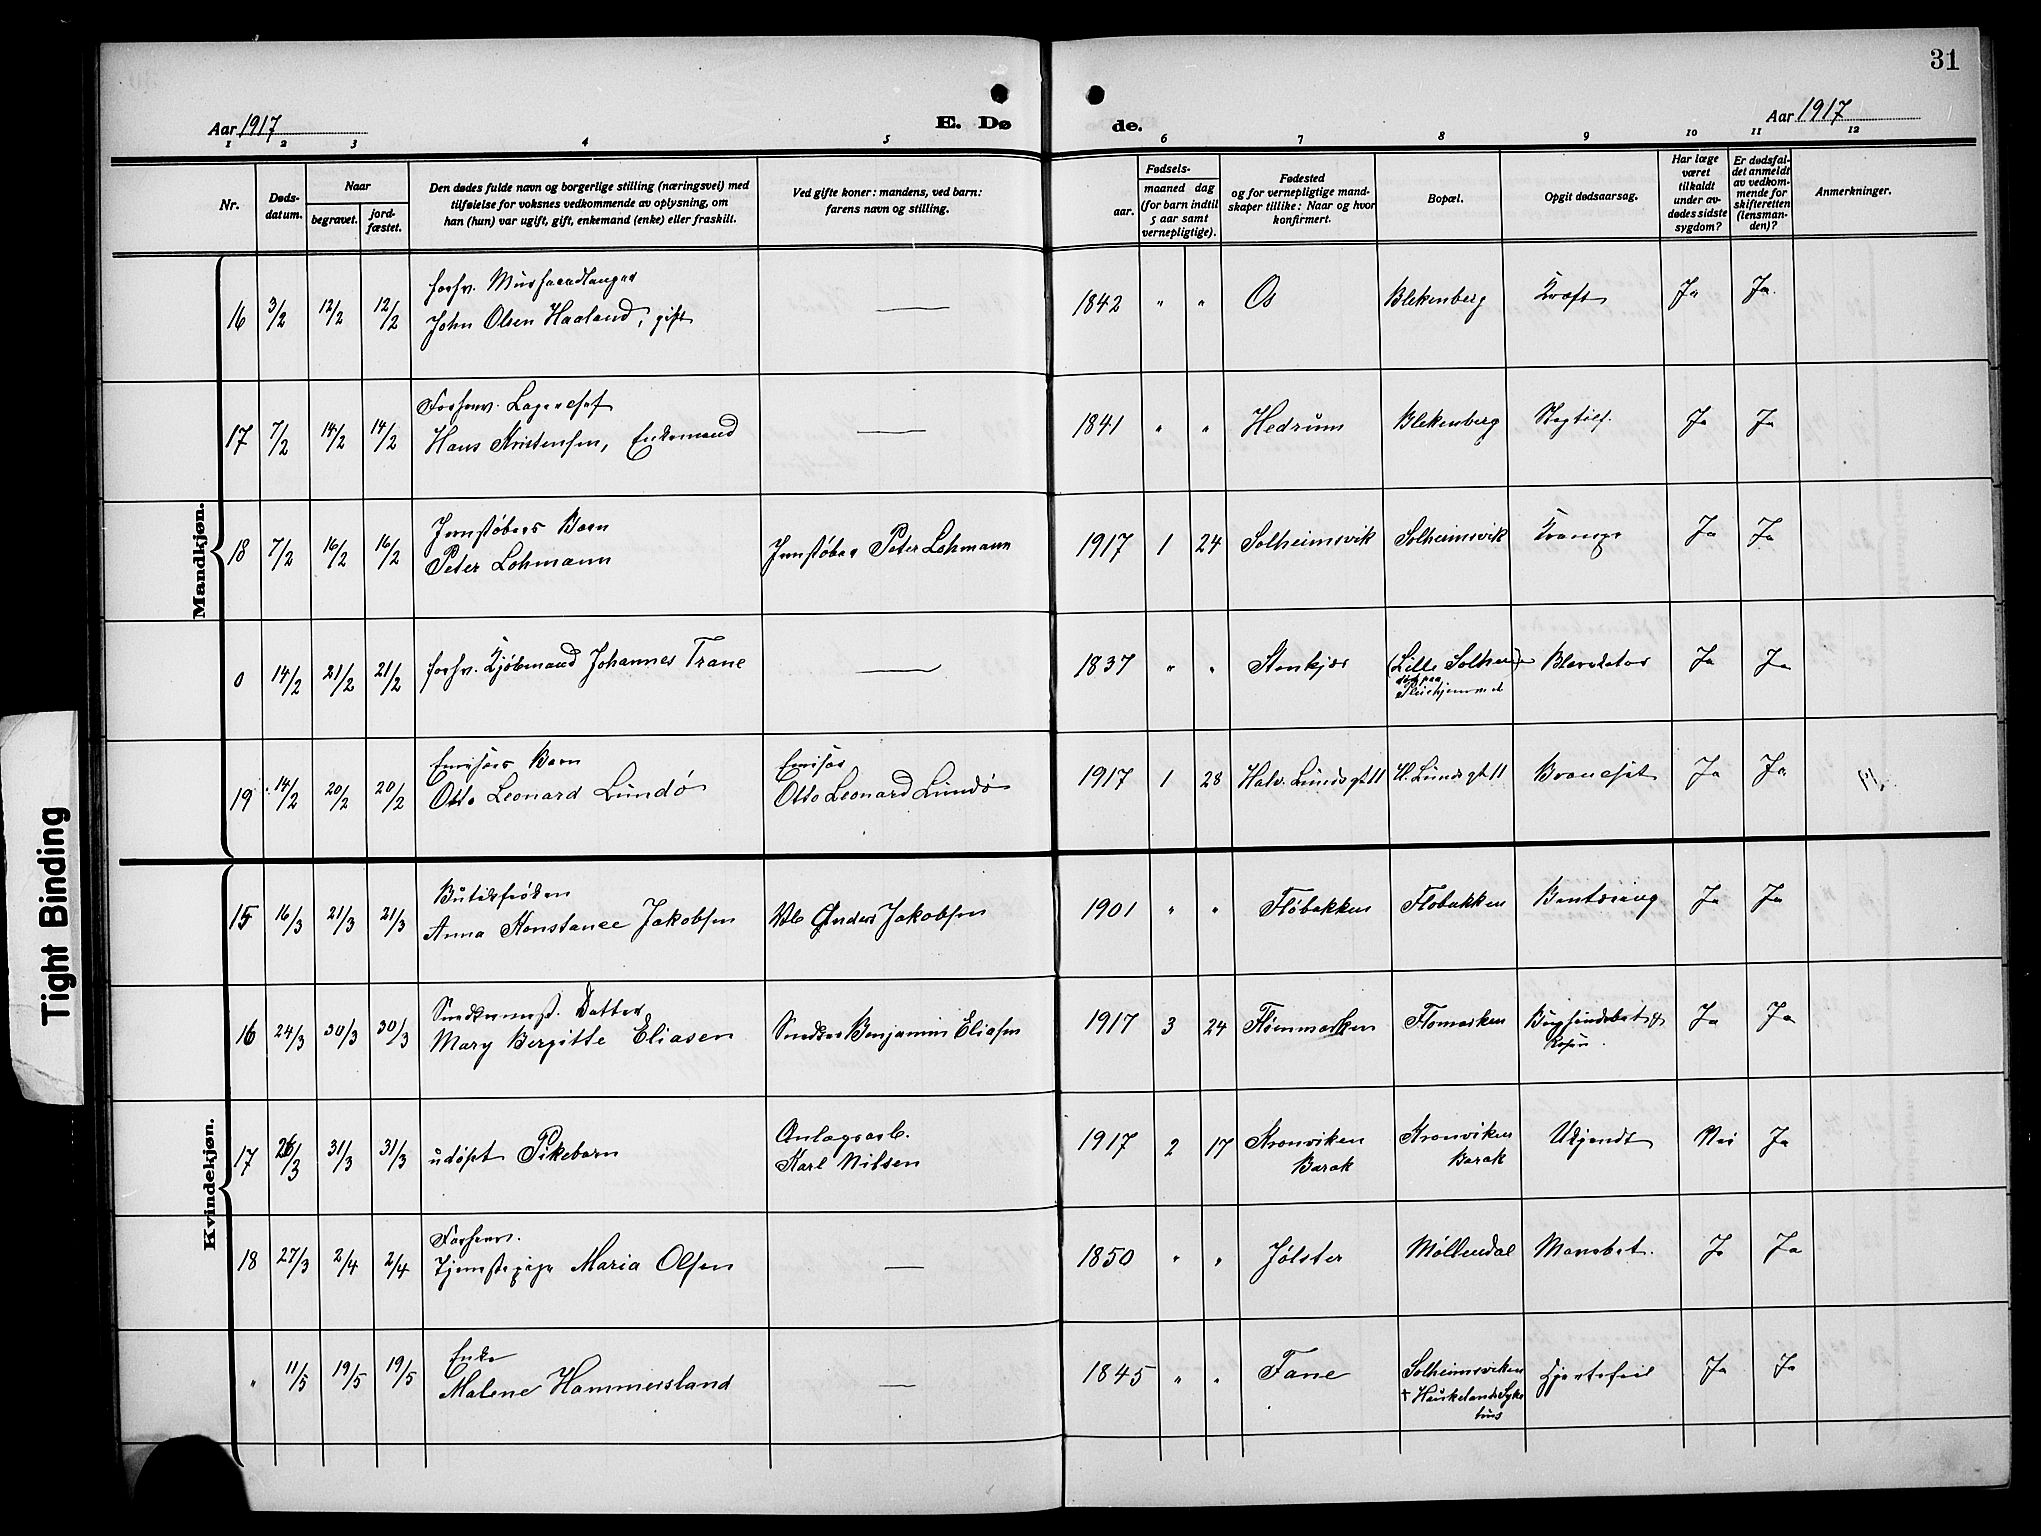 31
Aar 1917
E. Dø
de.
Aar 1917
1 2 3 4 5 6 7 8 9 10 11 12
Nr.
Døds-
datum.
Naar
begravet.
jord-
fæstet.
Den dødes fulde navn og borgerlige stilling (næringsvei) med
tilføielse for voksnes vedkommende av oplysning, om
han (hun) var ugift, gift, enkemand (enke) eller fraskilt.
Ved gifte koner: mandens, ved barn:
farens navn og stilling.
Fødsels-
aar.
maaned dag
(for barn indtil
5 aar samt
vernepligtige).
Fødested
og for vernepligtige mand-
skaper tillike: Naar og hvor
konfirmert.
Bopæl.
Opgit dødsaarsag.
Har læge
været
tilkaldt
under av-
dødes sidste
sygdom?
Er dødsfal-
det anmeldt
av vedkom-
mende for
skifteretten
(lensman-
den)?
Anmerkninger.
Mandkjøn.
forhv.
16 3/2 12/2 12/2 John Olsen Haaland, gift — 1842 " " Os Blekenberg Kræft Ja Ja
Forhenv. Lagerchef
17 7/2 14/2 14/2 Hans Kristensen, Enkemand — 1841 " " Hedrum Blekenberg Ja Ja
Jernstøbers Barn
18 7/2 16/2 16/2 Peter Lohmann Jernstøber Peter Lohmann 1917 1 24 Solheimsvik Solheimsvik Krampe Ja Ja
0 14/2 21/2 21/2 forhv. Kjøbmand Johannes Trane — 1837 " " Stenkjær (Lille Solhem) Ja Ja
død paa
Pleiehjemmet
Barn
19 14/2 20/2 20/2 Otto Leonard Lundø Otto Leonard Lundø 1917 1 28 Halv. Lunds gt 11 H. Lunds gt 11 Ja Ja
Kvindekjøn.
Butikfrøken
15 16/3 21/3 21/3 Anna Konstance Jakobsen Jakobsen 1901 " " Fløbakken Fløbakken Ja Ja
Snekkermest. Datter
16 24/3 30/3 30/3 Mary Bergitte Eliasen Snekker Benjamin Eliasen 1917 3 24 Ja Ja
17 26/3 31/3 31/3 udøpt Pikebarn Anlægsarb.
Karl Nilsen 1917 2 17 Kronviken
Barak Kronviken
Barak Ukjendt Nei Ja
Forhenv.
18 27/3 2/4 2/4 Tjenestepige Maria Olsen — 1850 " " Jølster Møllendal Ja Ja
Enke
" 11/5 19/5 19/5 Malene Hammersland — 1845 " " Fane Solheimsviken
† Haukelands Syke
hus Hjertefeil Ja Ja
Tight Binding